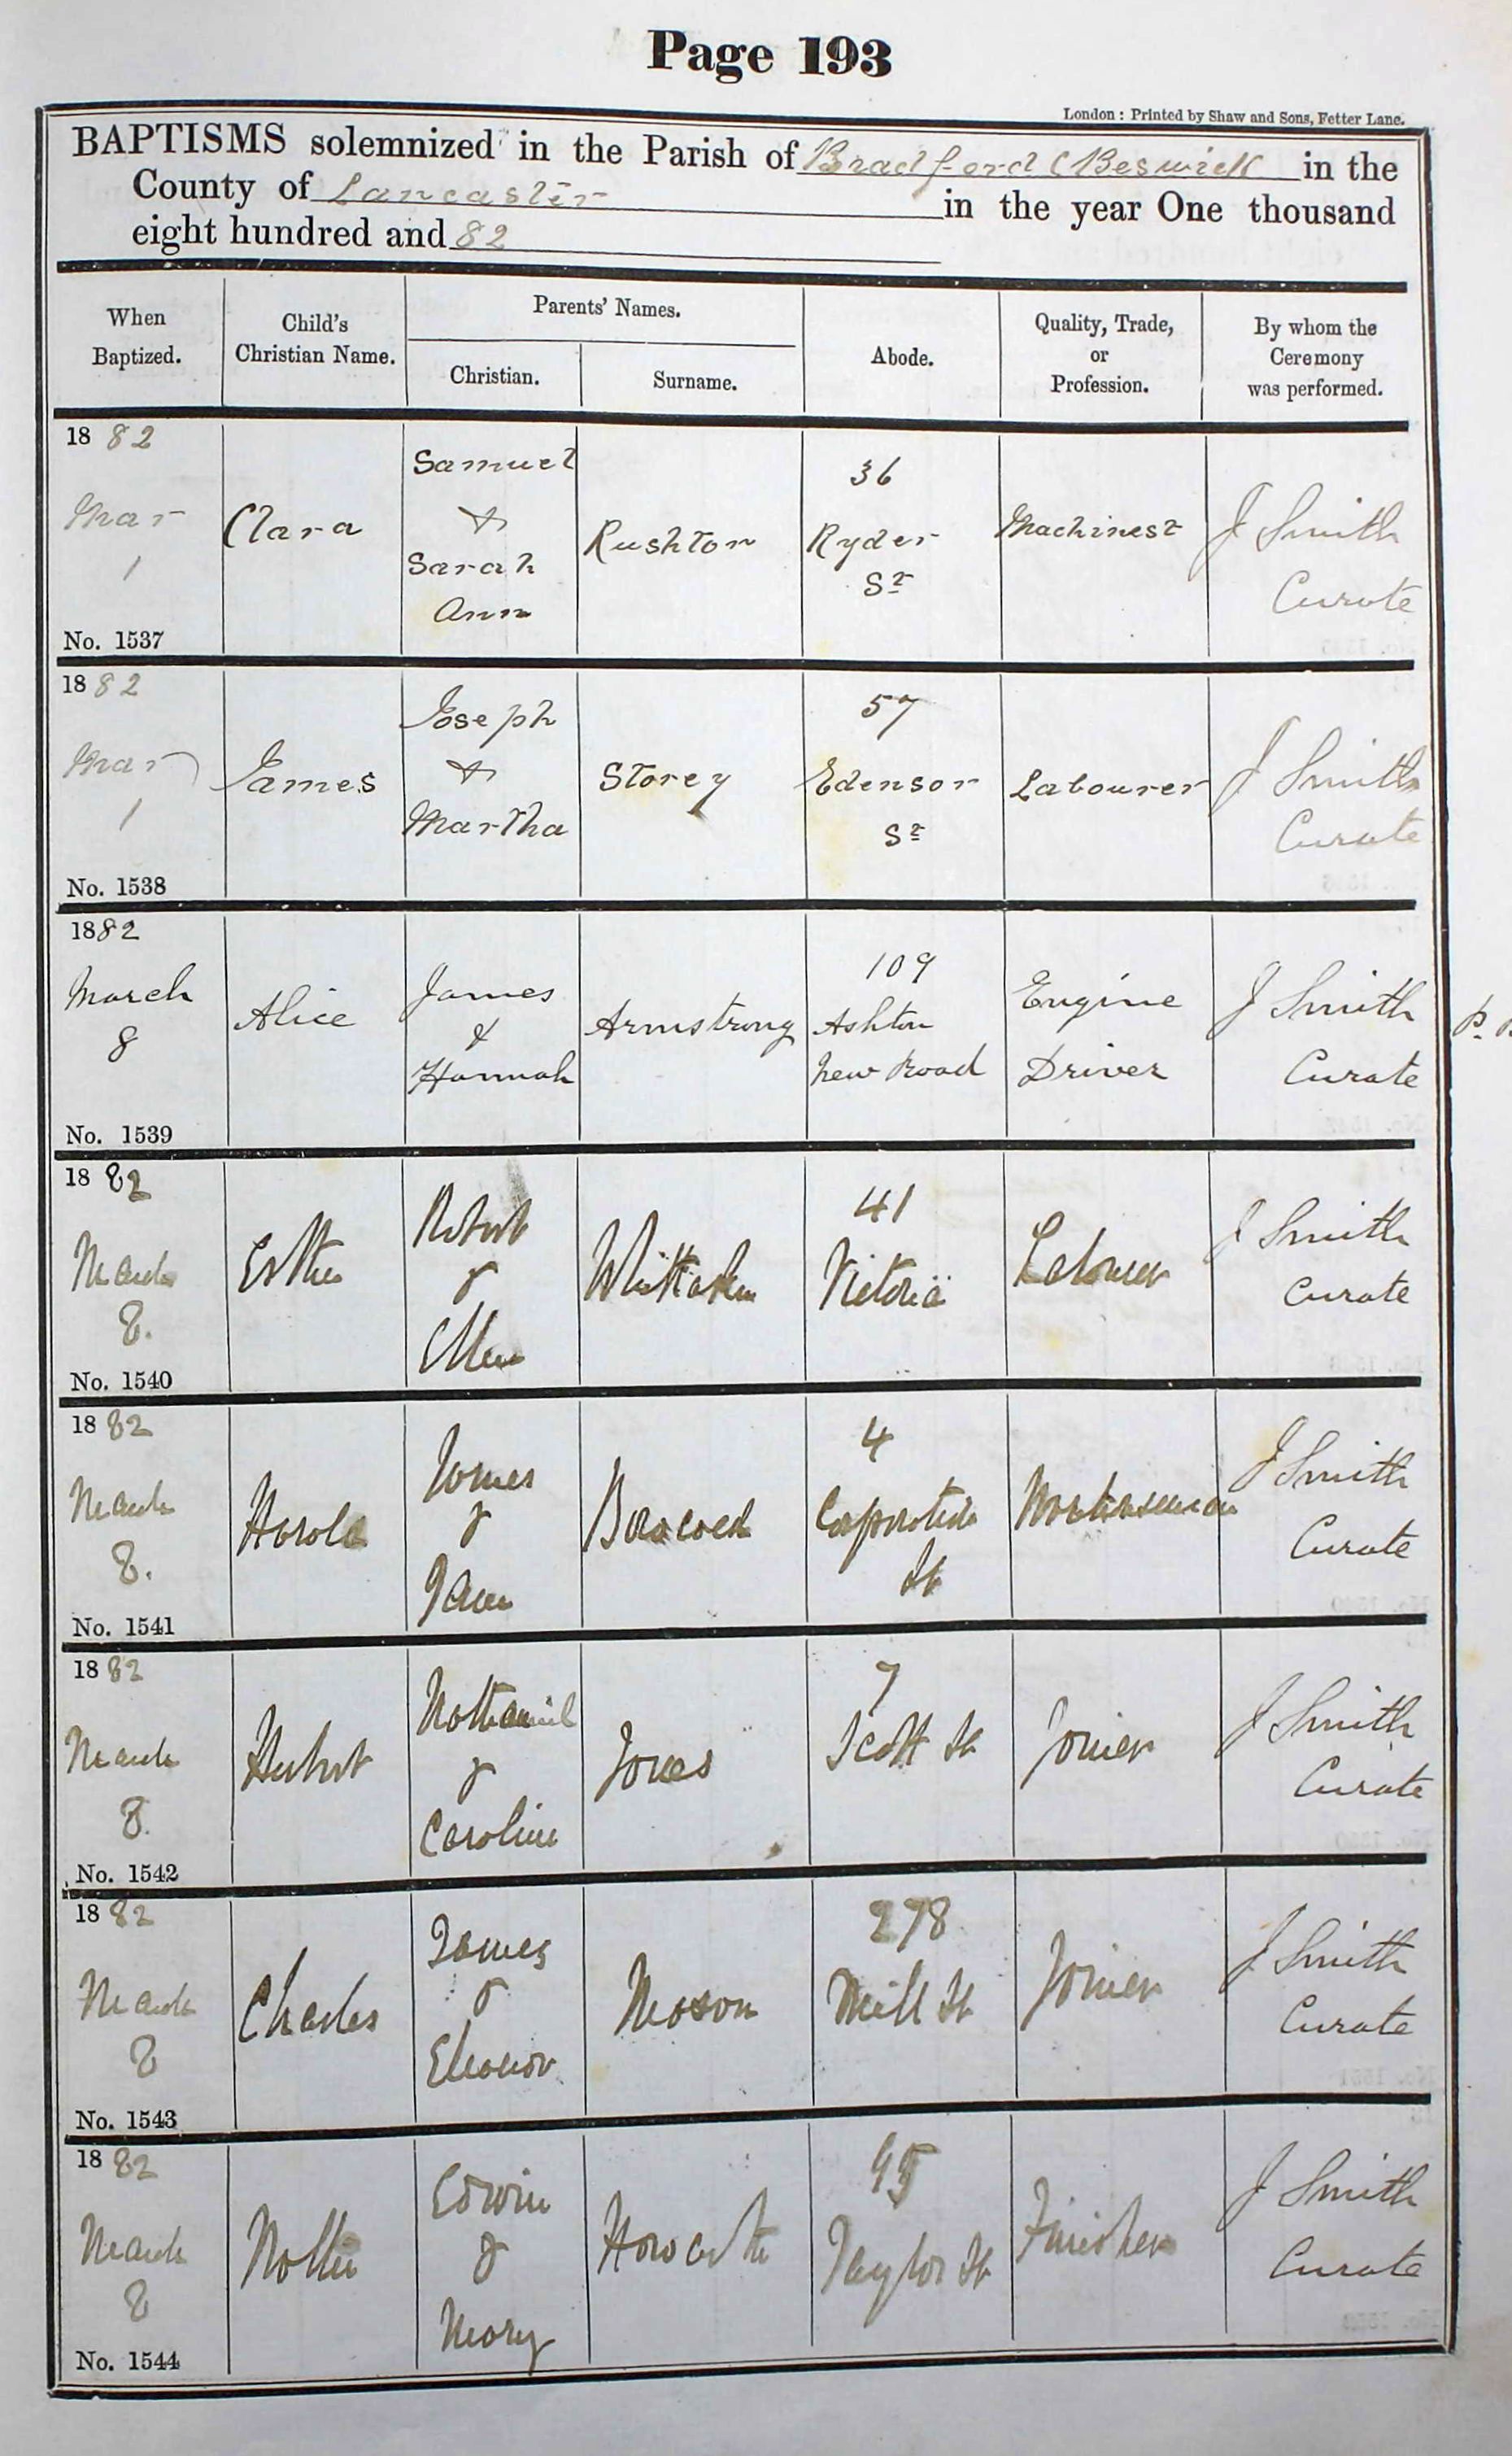 Page 193
London : Printed by Shaw and Sons, Fetter Lane.
BAPTISMS solemnized in the Parish of Bradford (Beswick in the
County of Lancaster in the year One thousand
eight hundred and 82
When Baptized.
Child's Christian Name.
Parents' Names.
Christian.
Surname.
Abode.
Quality, Trade, or Profession.
By whom the Ceremony was performed.
1882
Mar
1
No. 1537
Clara
Samuel
&
Sarah
Ann
Rushton
36
Ryder
St
Machinest
J Smith
Curate
1882
Mar
1
No. 1538
James
Joseph
&
Martha
Storey
57
Edensor
St
Labourer
J Smith
Curate
1882
March
8
No. 1539
Alice
James
&
Hannah
Armstrong
109
Ashton
New Road
Engine
Driver
J Smith
Curate
1882
March
8.
No. 1540
Esther
Robert
&
Ellen
Whittaker
41
Victoria
Labourer
J Smith
Curate
1882
March
8.
No. 1541
Harold
James
&
Jane
4
St
J Smith
Curate
1882
March
8.
No. 1542
Hubert
Nathaniel
&
Caroline
Jones
7
Scott St
Joiner
J Smith
Curate
1882
March
8
No. 1543
Charles
James
&
Eleanor
Mason
278
Mill St
Joiner
J Smith
Curate
1882
March
8
No. 1544
Edwin
&
Mary
Howarth
Taylor St
Finisher
J Smith
Curate